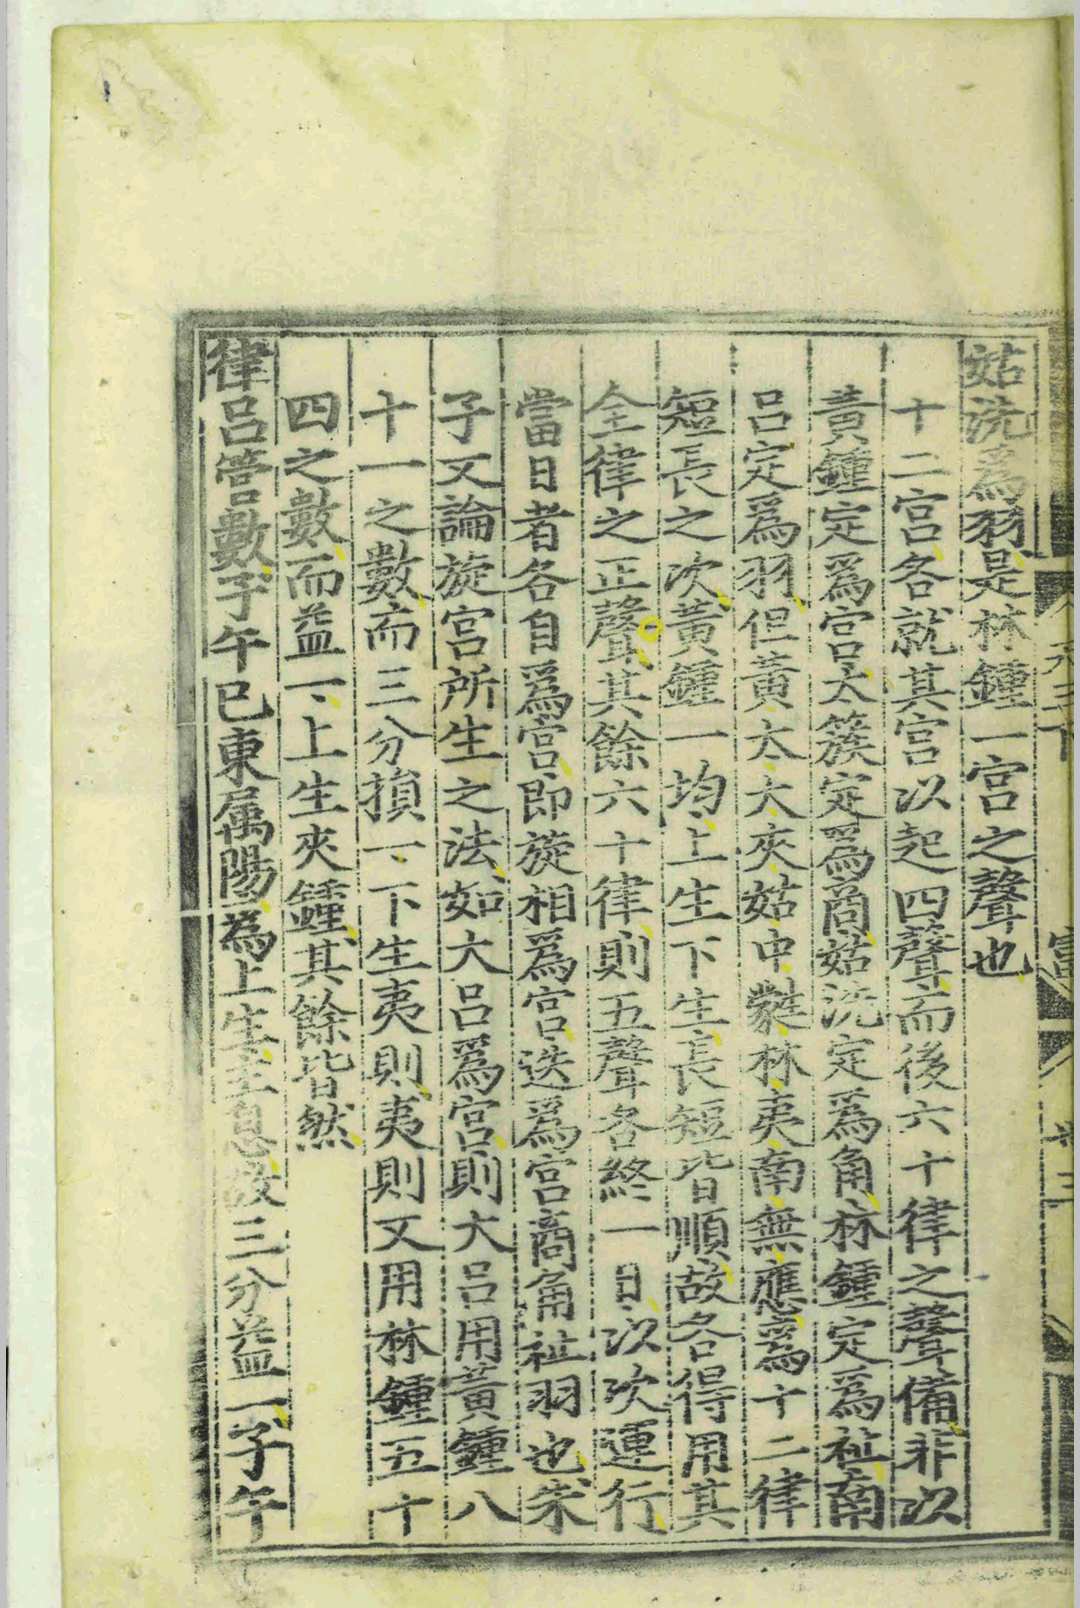 姑洗爲羽是林鍾一宮之聲也
十二宮各就其宮以起四聲而後六十律之聲備非以
黃鍾定爲宮太簇定爲商姑洗定爲角林鍾定爲祉南
呂定爲羽但黃太大夾姑中蕤林夷南無應爲十二律
短長之次黃鍾一均上生下生長短皆順故各得用其
全律之正聲其餘六十律則五聲各終一日以次運行
當日者各自爲宮即旋相爲宮迭爲宮商角祉羽也朱
子又論旋宮所生之法如大呂爲宮則大呂用黃鍾八
十一之數而三分損一下生夷則夷則又用林鍾五十
四之數而益一上生夾鍾其餘皆然
律呂管數子午巳東属陽爲上生主息故三分益一子午